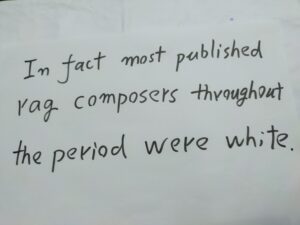 In fact most published
rag composers throughout
the period were white.